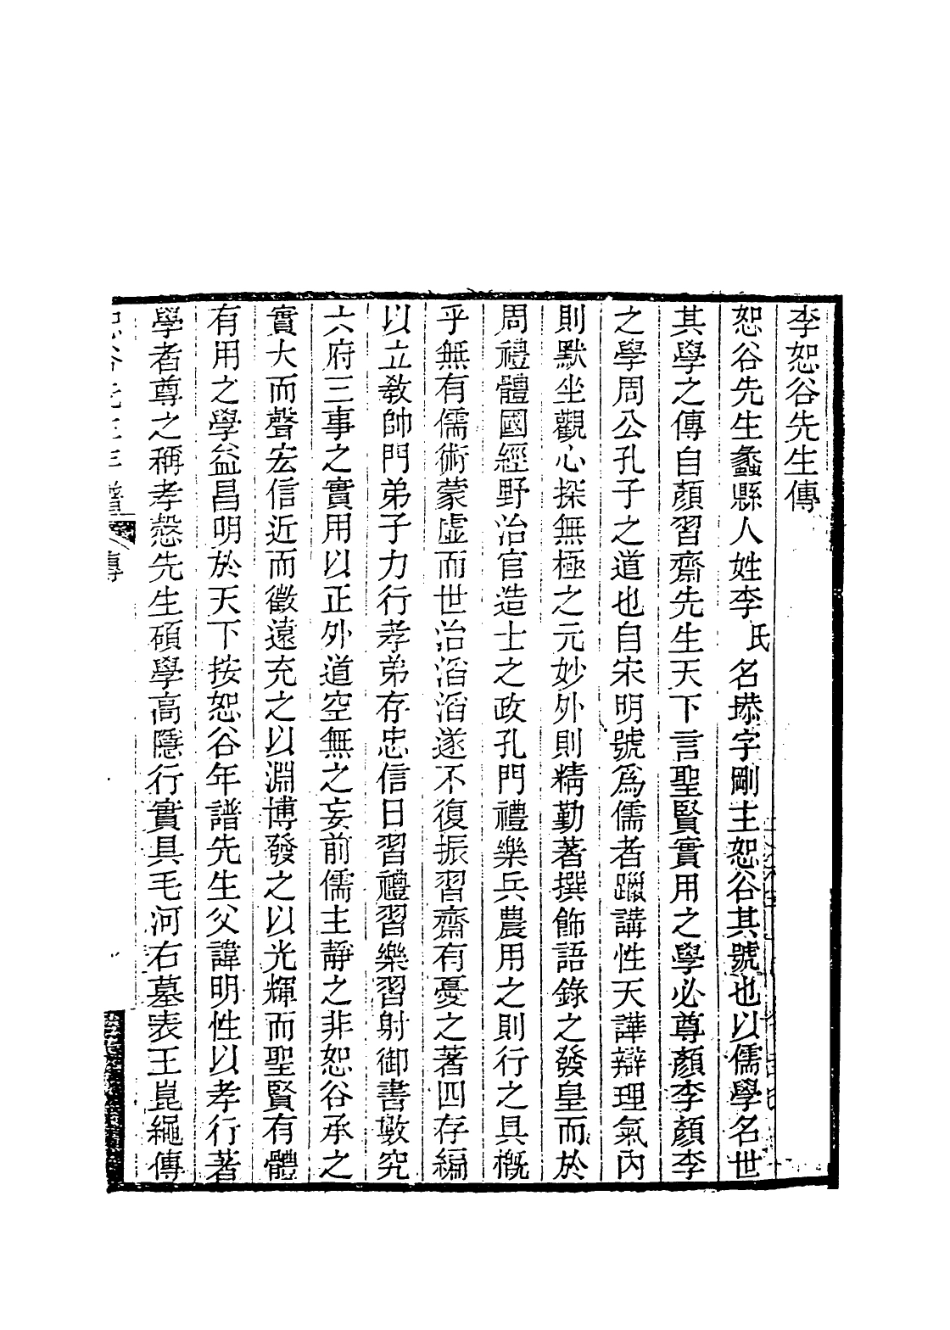 李恕谷先生傳
恕谷先生蠡縣人姓李氏名塨字剛主恕谷其號也以儒學名世
其學之傳自顏習齋先生天下言聖賢實用之學必尊顏李顏李
之學周公孔子之道也自宋明號爲儒者躐講性天譁辯理氣內
則默坐觀心探無極之元妙外則精勤著撰飾語錄之發皇而於
周禮體國經野治官造士之政孔門禮樂兵農用之則行之具槪
乎無有儒術蒙虛而世治滔滔遂不復振習齋有憂之著四存編
以立敎帥門弟子力行孝弟存忠信日習禮習樂習射御書數究
六府三事之實用以正外道空無之妄前儒主靜之非恕谷承之
實大而聲宏信近而徵遠充之以淵博發之以光輝而聖賢有體
有用之學益昌明於天下按恕谷年譜先生父諱明性以孝行著
學者尊之稱孝慤先生碩學高隱行實具毛河右墓表王崑繩傳
恕谷先生年譜 傳